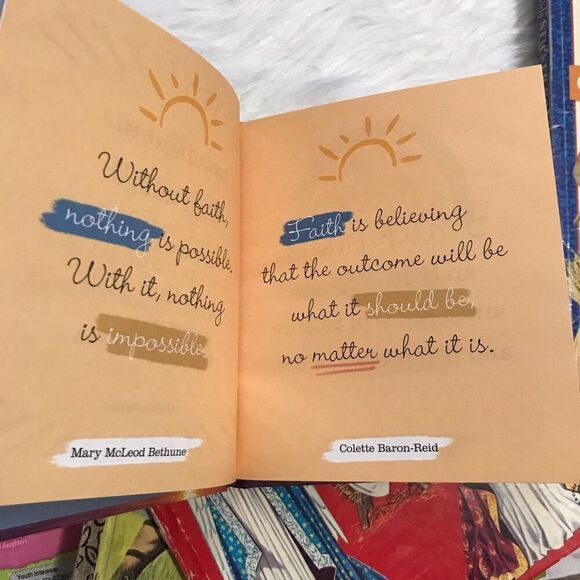 Without faith,
nothing is possible.
With it, nothing
is impossible.
Mary McLeod Bethune
Faith is believing
that the outcome will be
what it should be,
no matter what it is.
Colette Baron-Reid
daughters
Youth Interests